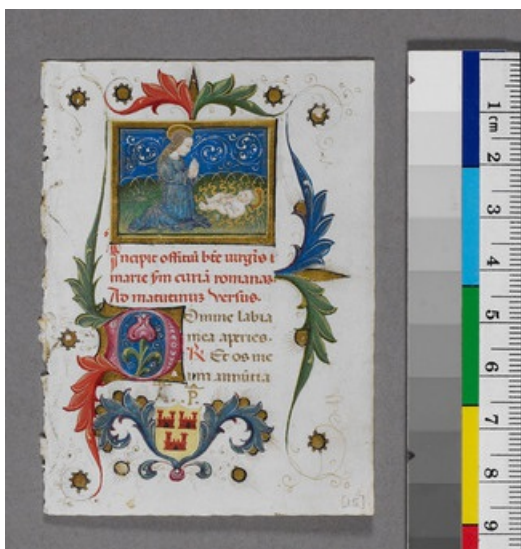 Incipit offitiū bte uirgīs i
marie sm curiā romanaz.
Ad matutinuz versus.
Domine labia
mea aperies.
R Et os me
um annūtia
[15]
1
cm
2
3
4
5
6
7
8
9